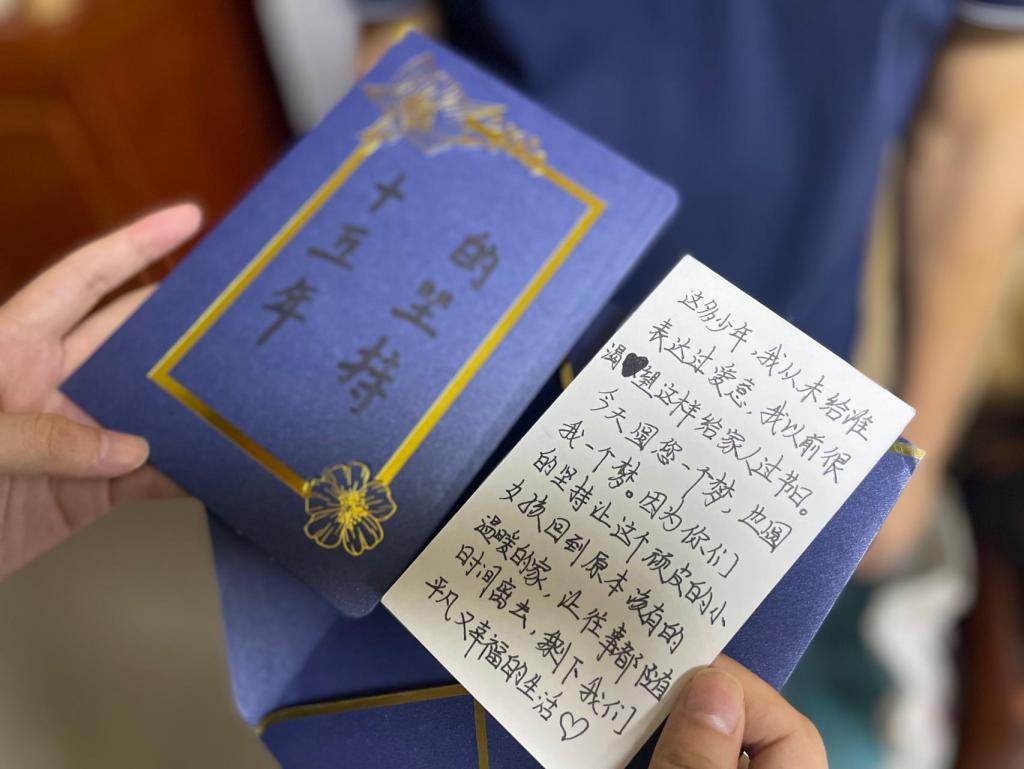 十五年
的坚持
这多少年,我从未给谁
表达过爱意,我以前很
渴望这样给家人过节日。
今天圆您一个梦,也圆
我一个梦。因为你们
的坚持让这个顽皮的小
女孩回到原本该有的
温暖的家,让往事都随
时间离去,剩下我们
平凡又幸福的生活♡